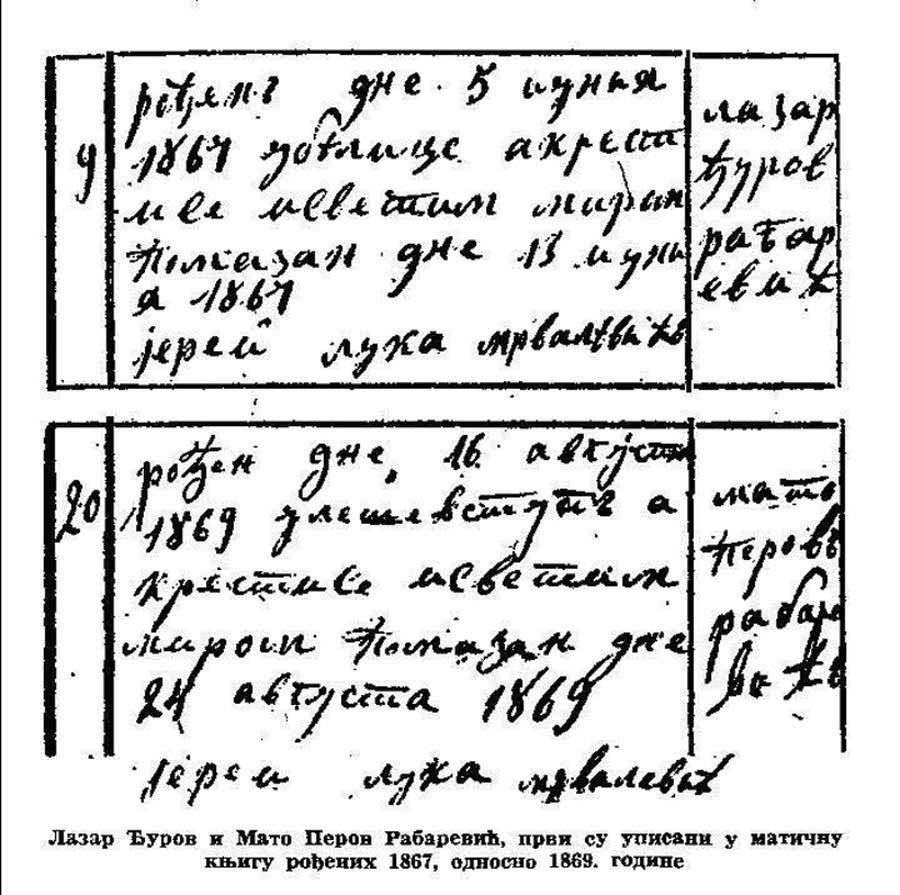 9
рођенъ дне. 5 иунья
1867 уоблице акрест
исе исветим миром
помазан дне 13 иунь
я 1867
јереи лука мрвалевићъ
лазар
ђуров
рабар
евић
20
рођен дне 16 августа
1869 а
крестисе исветим
миром помазан дне
24 августа 1869
Јереи лука мрвалевић
мато
перовъ
рабаре
Лазар Ђуров и Мато Перов Рабаревић, први су уписани у матичну
књигу рођених 1867, односно 1869. године